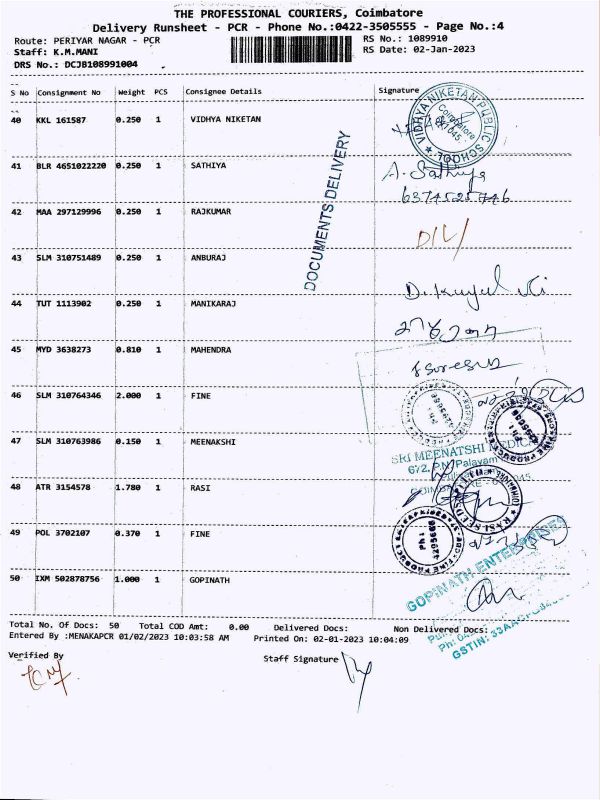 THE PROFESSIONAL COURIERS, Coimbatore
Delivery Runsheet - PCR - Phone No.:0422-3505555 - Page No.:4
Route: PERIYAR NAGAR - PCR
RS No.: 1089910
Staff: K.M.MANI
RS Date: 02-Jan-2023
DRS No.: DCJB108991004
S No Consignment No Weight PCS Consignee Details Signature
40 KKL 161587 0.250 1 VIDHYA NIKETAN
VIDHYA NIKETAN PUBLIC SCHOOL
Coimbatore
41 BLR 4651022220 0.250 1 SATHIYA
A. Sathiya
6374525746
42 MAA 297129996 0.250 1 RAJKUMAR
43 SLM 310751489 0.250 1 ANBURAJ
DOCUMENTS DELIVERY
44 TUT 1113902 0.250 1 MANIKARAJ
45 MYD 3638273 0.810 1 MAHENDRA
46 SLM 310764346 2.000 1 FINE
47 SLM 310763986 0.150 1 MEENAKSHI
SRI MEENATSHI MEDICAL
672, P.N. Palayam
48 ATR 3154578 1.780 1 RASI
49 POL 3702107 0.370 1 FINE
50 IXM 502878756 1.000 1 GOPINATH
GOPINATH ENTERPRISES
GSTIN: 33AA
Total No. Of Docs: 50 Total COD Amt: 0.00 Delivered Docs: Non Delivered Docs:
Entered By :MENAKAPCR 01/02/2023 10:03:58 AM Printed On: 02-01-2023 10:04:09
Verified By
Staff Signature